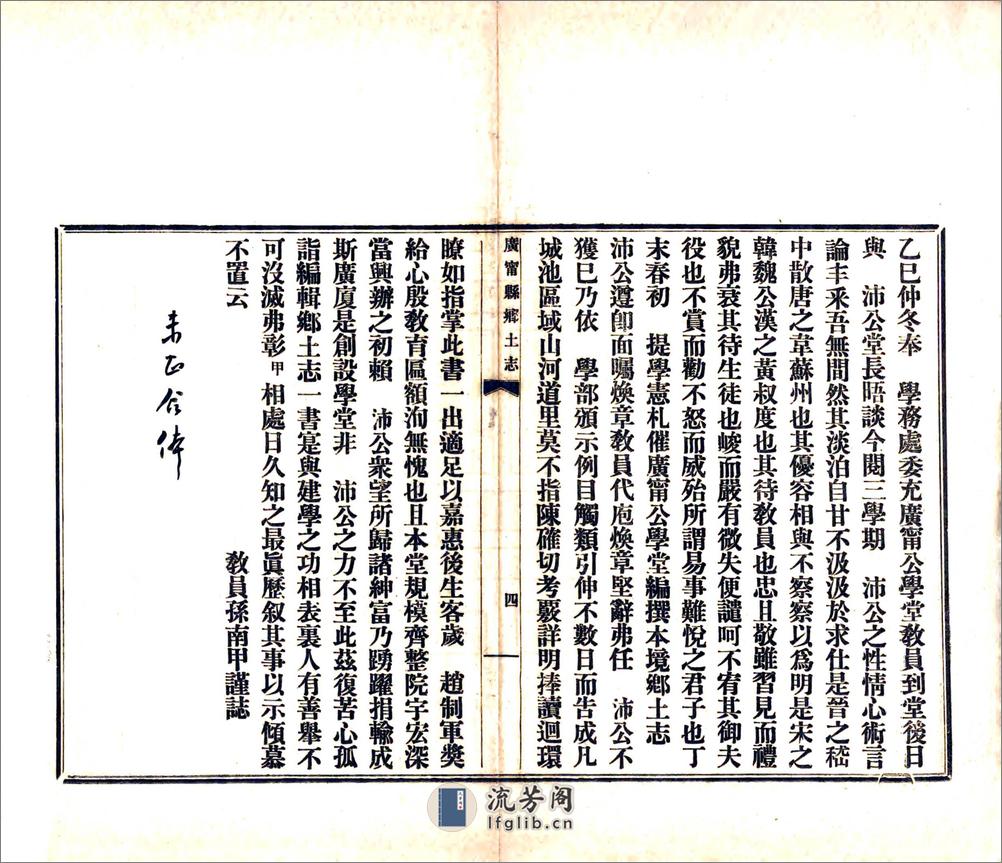 乙巳仲冬奉　學務處委充廣甯公學堂教員到堂後日
與　沛公堂長晤談今閱三學期　沛公之性情心術言
論丰采吾無間然其淡泊自甘不汲汲於求仕是晉之嵇
中散唐之韋蘇州也其優容相與不察察以爲明是宋之
韓魏公漢之黃叔度也其待教員也忠且敬雖習見而禮
貌弗衰其待生徒也峻而嚴有微失便譴呵不宥其御夫
役也不賞而勸不怒而威殆所謂易事難悅之君子也丁
未春初　提學憲札催廣甯公學堂編撰本境鄉土志
沛公遵卽面囑煥章教員代庖煥章堅辭弗任　沛公不
獲已乃依　學部頒示例目觸類引伸不數日而告成凡
城池區域山河道里莫不指陳確切考覈詳明捧讀迴環
廣甯縣鄉土志
四
瞭如指掌此書一出適足以嘉惠後生客歲　趙制軍獎
給心殷敎育區額洵無愧也且本堂規模齊整院宇宏深
當興辦之初賴　沛公衆望所歸諸紳富乃踴躍捐輸成
斯廣厦是創設學堂非　沛公之力不至此茲復苦心孤
詣編輯鄉土志一書寔與建學之功相表裏人有善舉不
可沒滅弗彰甲相處日久知之最眞歷叙其事以示傾慕
不置云
敎員孫南甲謹誌
流芳阁
lfglib.cn